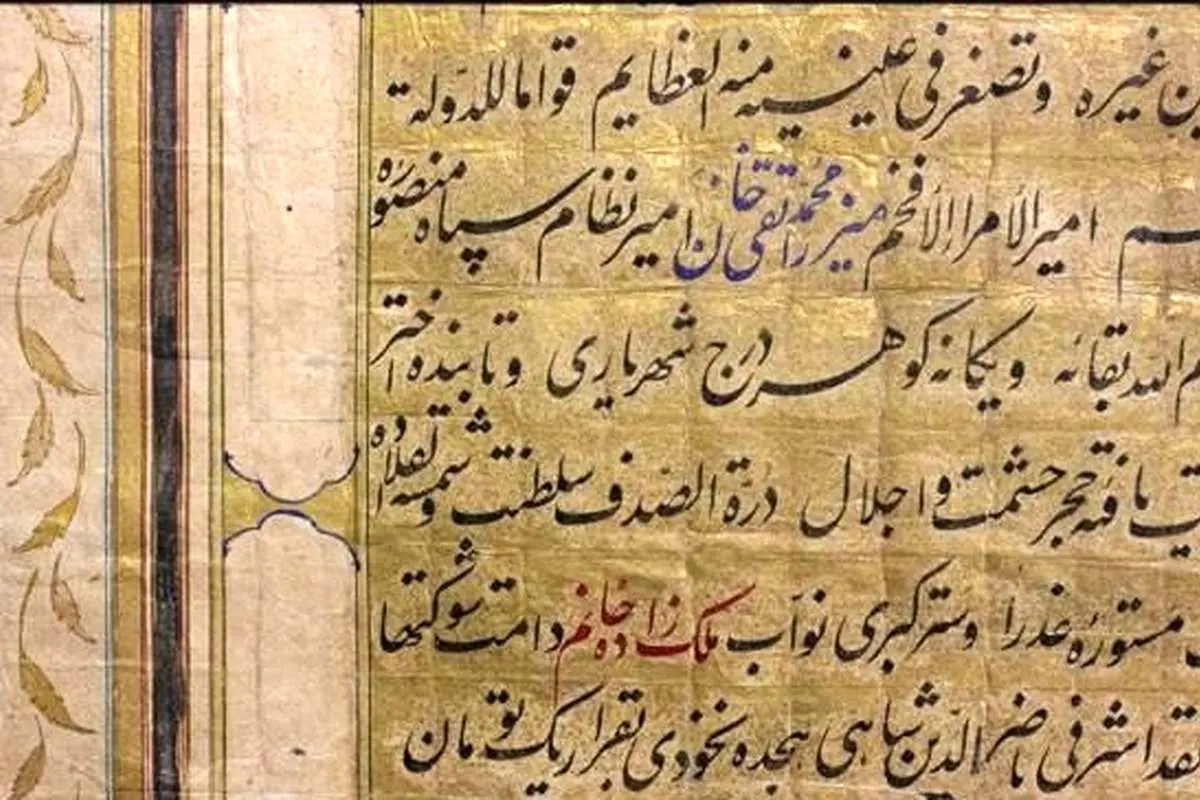 غیره وتصغر فی عینیه منه العظایم قواما للدولة
امیر الامرا الافخم میرزا محمد تقی خان امیر نظام سپاه منصوره
الله بقائه ویکانه کوهر درج شهریاری وتابنده اختر
یافته حجر حشمت واجلال درة الصدف سلطنت وشمسه القلاده
مستوره عذرا وستر کبری نواب ملک زاده خانم دامت شوکتها
نقد اشرفی ناصر الدین شاهی هجده نخودی بقرار یک تومان